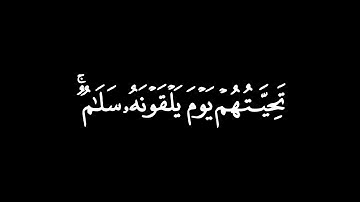 تَحِيَّتُهُمْ يَوْمَ يَلْقَوْنَهُۥ سَلَٰمٌ ۚ